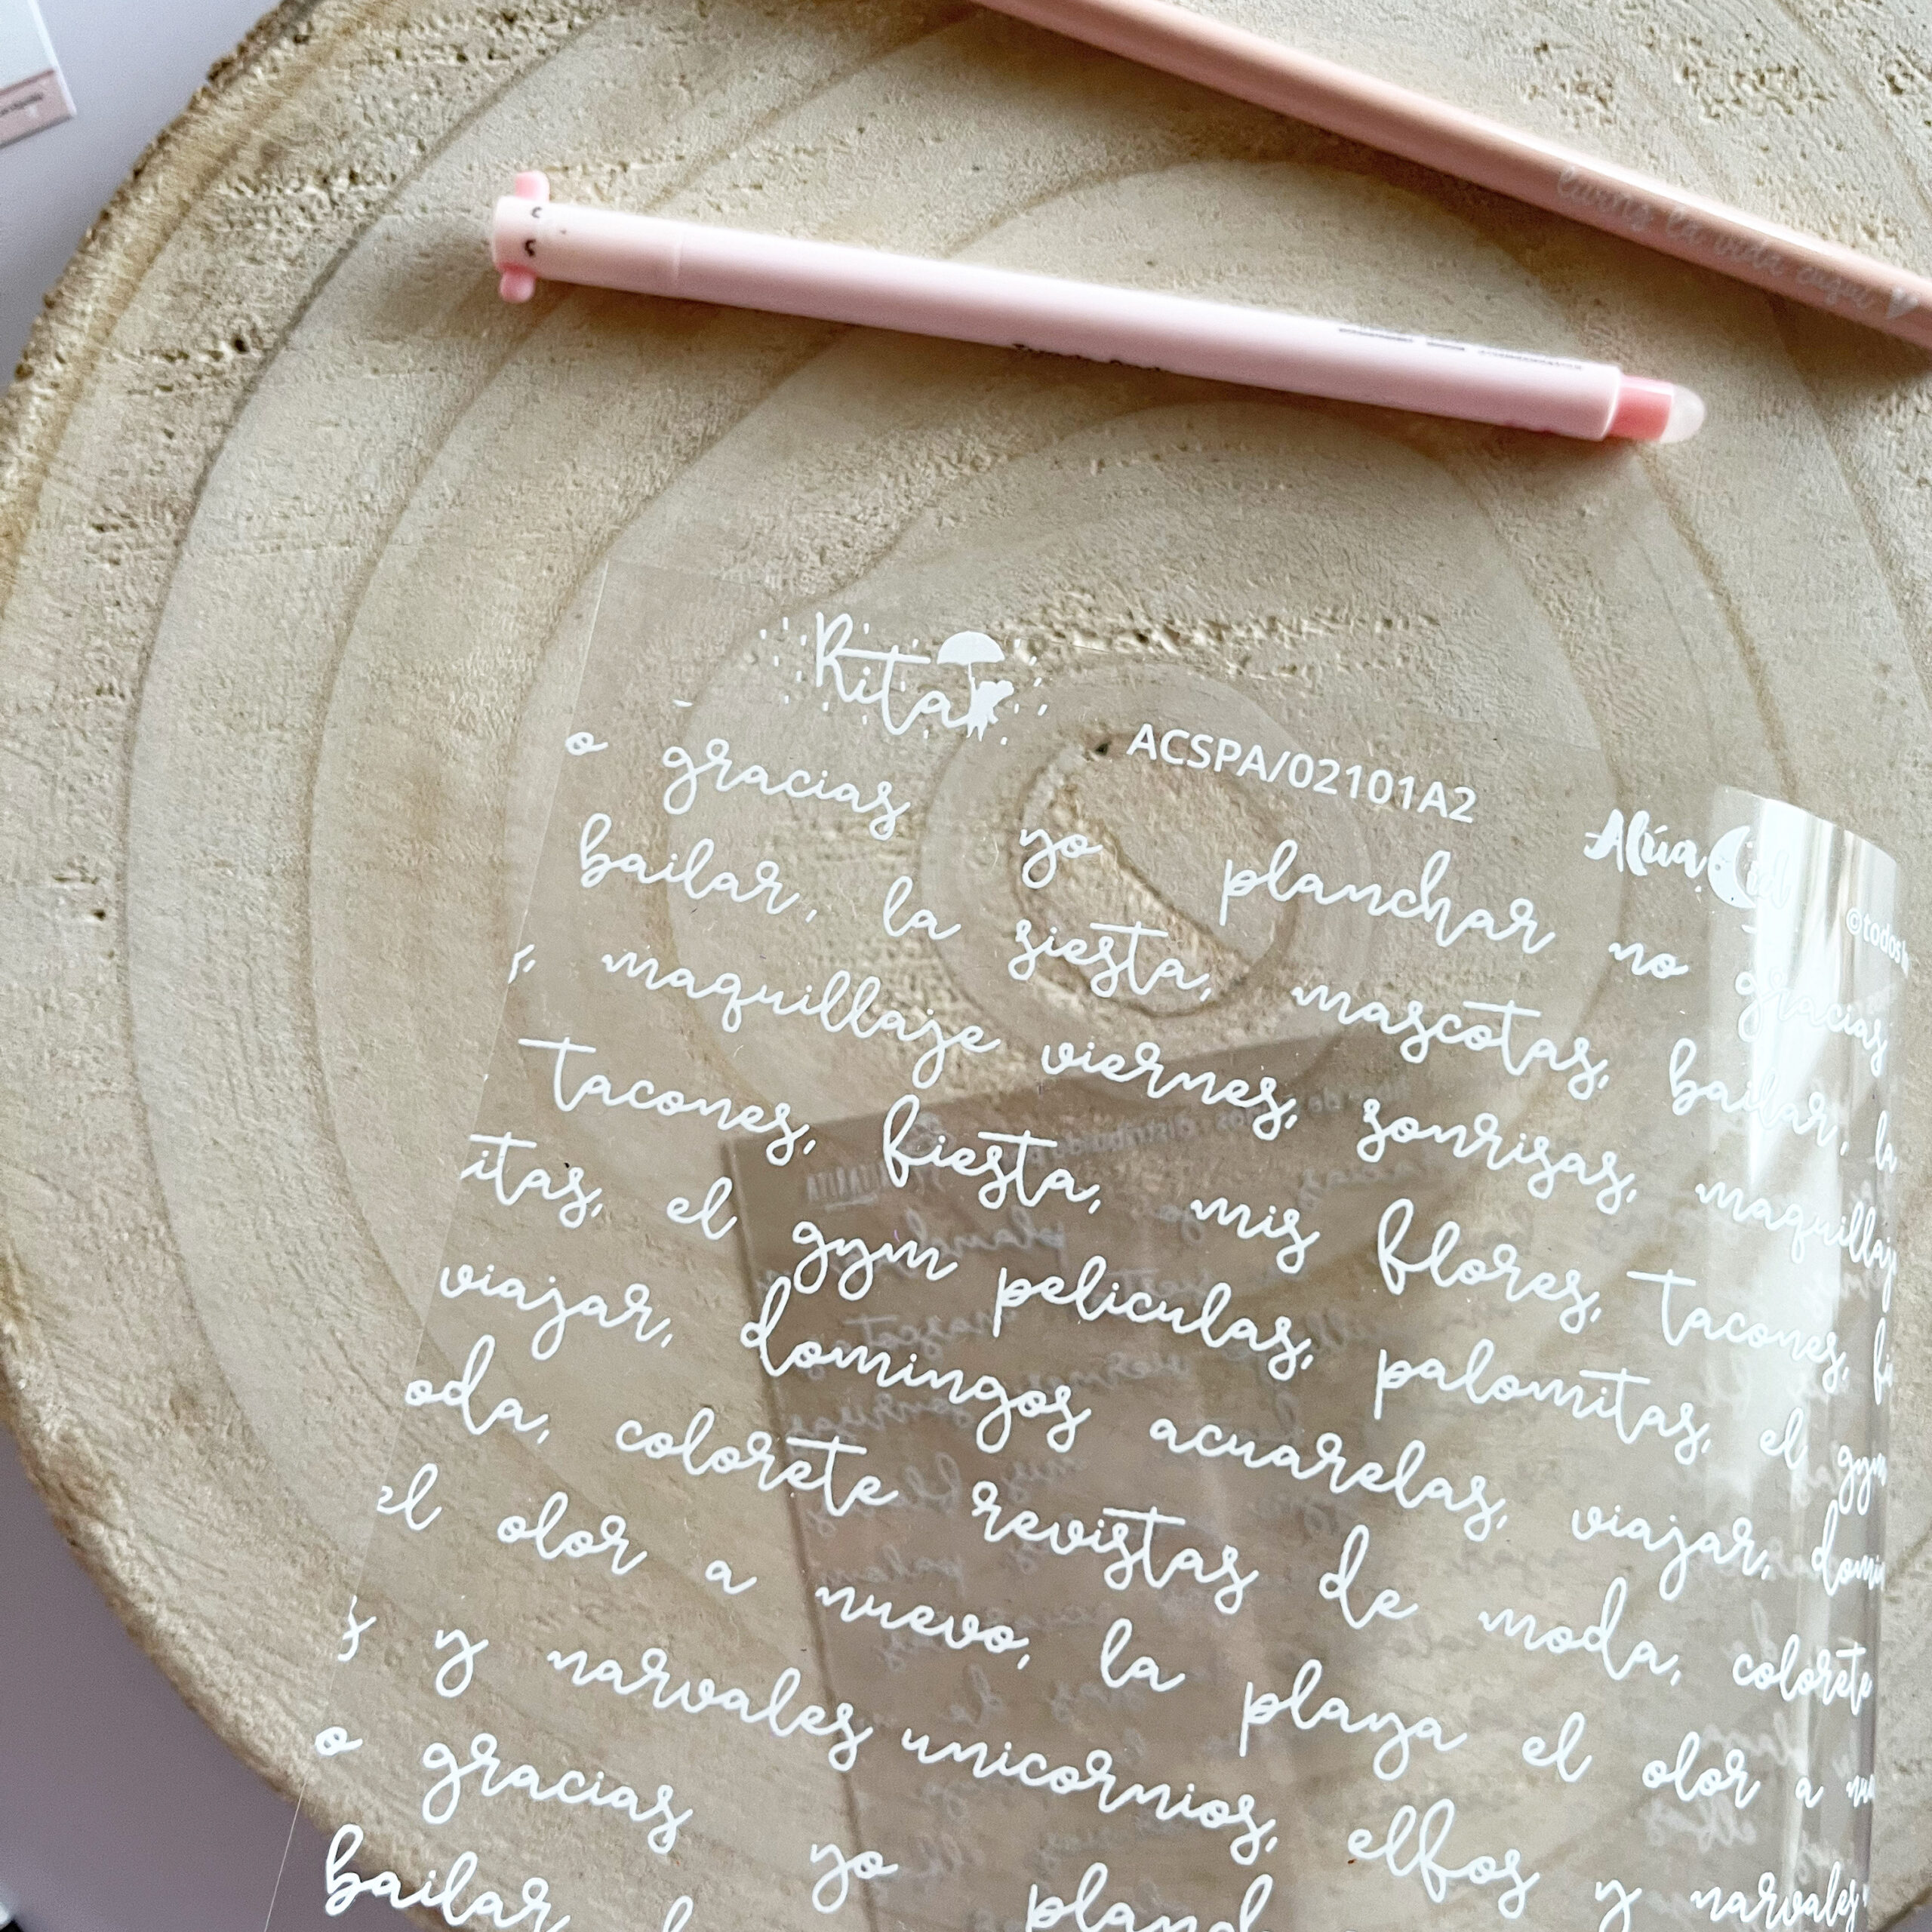 living la vida
Rita
ACSPA/02101A2
Alúa Cid
©todos
o gracias yo planchar no gracias
bailar, la siesta, mascotas, bailar, la
s, maquillaje viernes, sonrisas, maquillaje
tacones, fiesta, mis flores, tacones, fie
itas, el gym peliculas, palomitas, el gym
viajar, domingos acuarelas, viajar, domin
oda, colorete revistas de moda, colorete
el olor a nuevo, la playa el olor a nu
s y narvales unicornios, elfos y narvales
o gracias yo planch
bailar, l